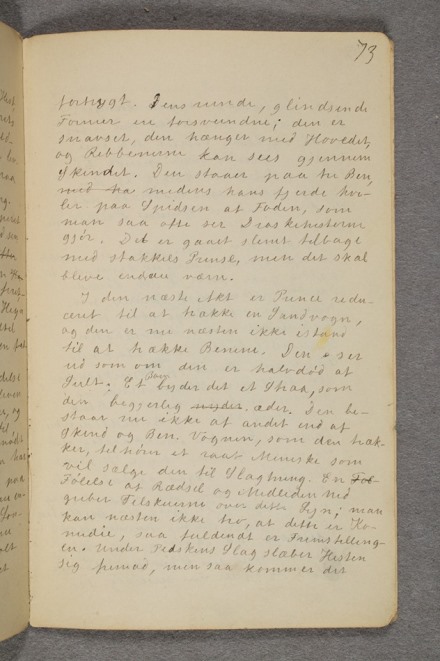 73
forhygt. Dens runde, glindsende
Former ere forsvundne; den er
snavset, den hænger med Hovedet,
og Ribbenene kan sees gjennem
Skindet. Den staaer paa tre Ben,
med ha medens hans fjerde hvi-
ler paa Spidsen af Foden, som
man saa ofte ser Droskehestene
gjør. Det er gaaet slemt tilbage
med stakkels Prinse, men det skal
blive endnu værn.
I den næste Akt er Prince redu-
ceret til at trække en Sandvogn,
og den er nu næsten ikke istand
til at trække Benene. Den ser
ud som om den er halvdød af
Sult. Et Barn byder det et Straa, som
den beggerlig nyder. æder. Den be-
staar nu ikke af andet end af
Skind og Ben. Vognen, som den træk-
ker, tilhører et raat Menneske som
vil sælge den til Slagtning. En Fol-
Følelse af Rædsel og Medliden hed
griber Tilskuerne over dette Syn; man
kan næsten ikke tro, at dette er Ko-
medie, saa fuldendt er Fremstilling-
en. Under Pidskens Slag slæber Hesten
sig fremad, men saa kommer det